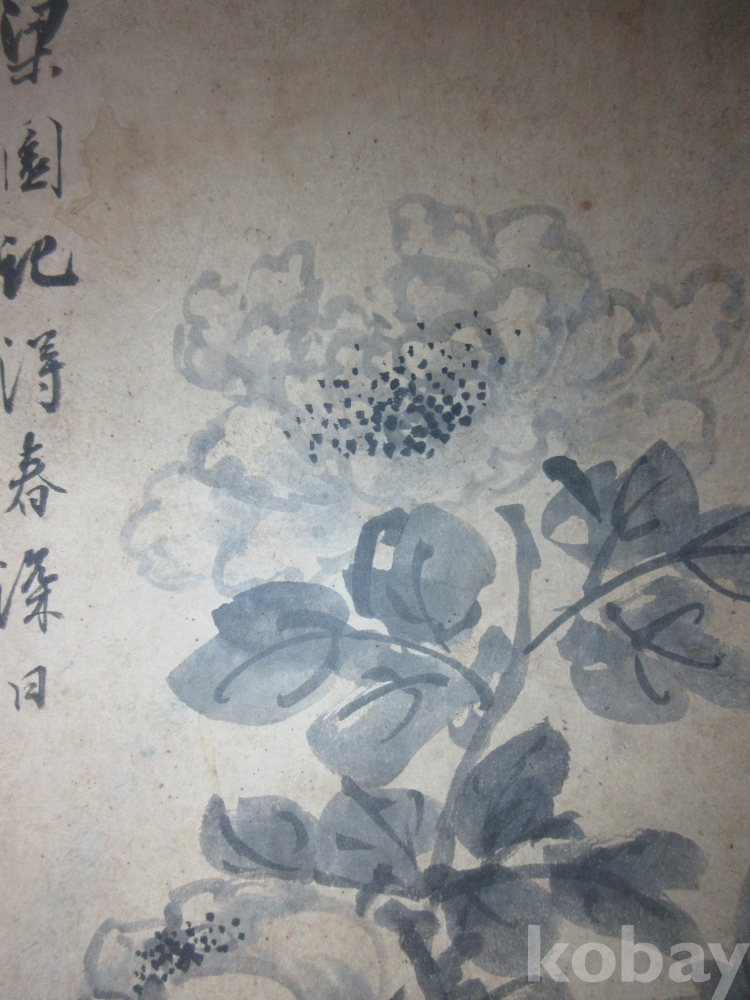 梁園記得春深日
kobay